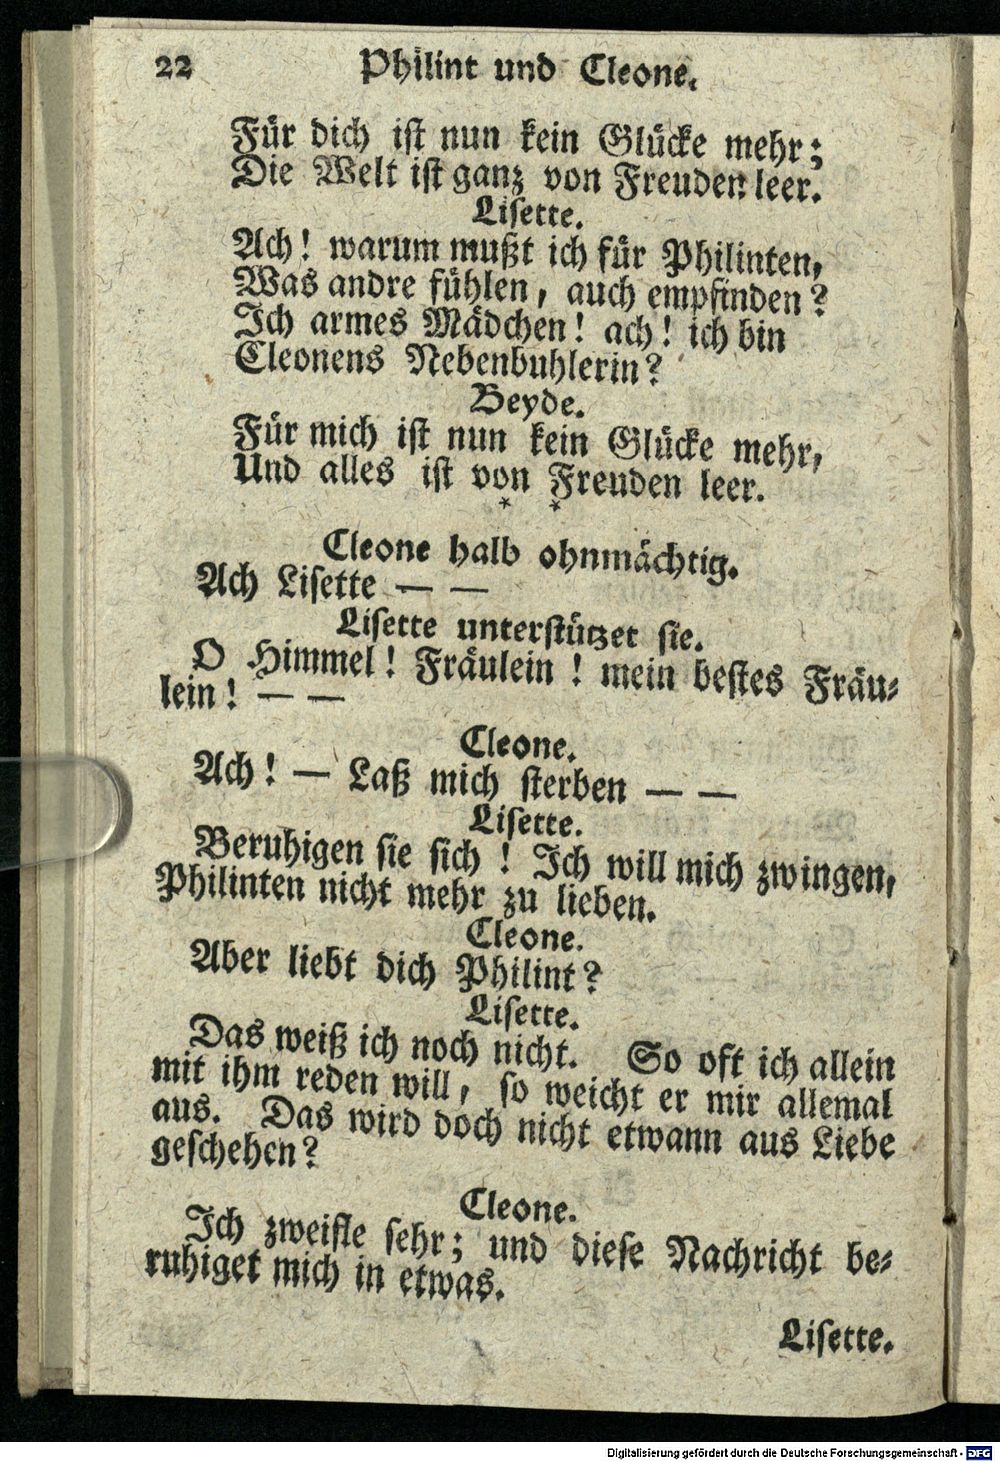 22 Philint und Cleone.
Für dich ist nun kein Glücke mehr;
Die Welt ist ganz von Freuden leer.
Lisette.
Ach! warum mußt ich für Philinten,
Was andre fühlen, auch empfinden?
Ich armes Mädchen! ach! ich bin
Cleonens Nebenbuhlerin?
Beyde.
Für mich ist nun kein Glücke mehr,
Und alles ist von Freuden leer.
* *
Cleone halb ohnmächtig.
Ach Lisette — —
Lisette unterstützet sie.
O Himmel! Fräulein! mein bestes Fräu-
lein! — —
Cleone.
Ach! — Laß mich sterben — —
Lisette.
Beruhigen sie sich! Ich will mich zwingen,
Philinten nicht mehr zu lieben.
Cleone.
Aber liebt dich Philint?
Lisette.
Das weiß ich noch nicht. So oft ich allein
mit ihm reden will, so weicht er mir allemal
aus. Das wird doch nicht etwann aus Liebe
geschehen?
Cleone.
Ich zweifle sehr; und diese Nachricht be-
ruhiget mich in etwas.
Lisette.
Digitalisierung gefördert durch die Deutsche Forschungsgemeinschaft - DFG